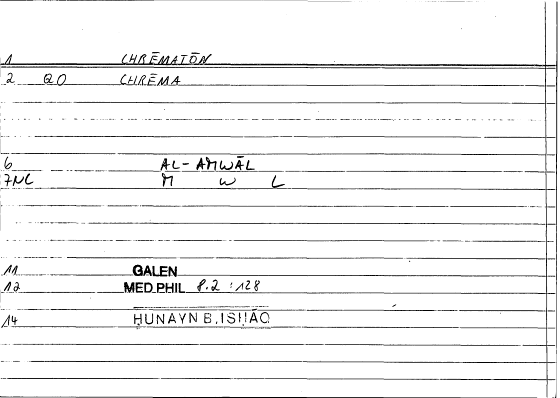 1 CHRĒMATŌN
2 QO CHRĒMA
6 AL-AMWĀL
7NC M W L
11 GALEN
12 MED.PHIL 8.2 :128
14 ḤUNAYN B.ISḤĀQ